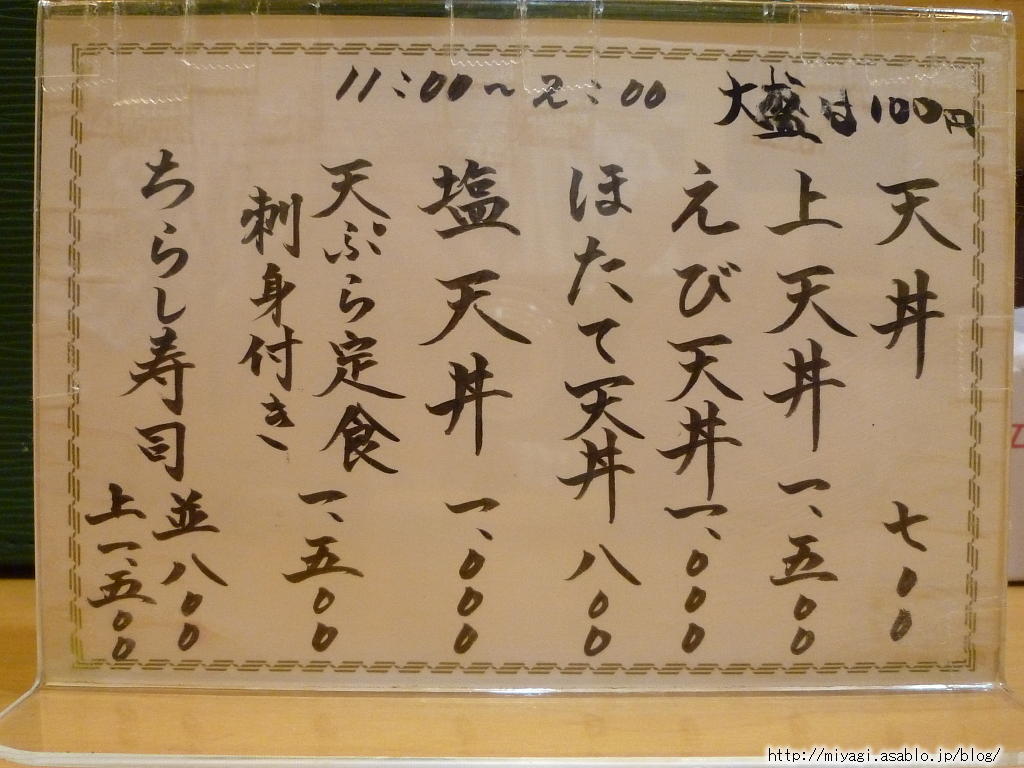 11:00~2:00
大盛は100円
天丼 七00
上天丼 一、五00
えび天丼 一、000
ほたて天丼 八00
塩天丼 一、000
天ぷら定食 一、五00
刺身付き
ちらし寿司 並 八00
上 一、五00
http://miyagi.asablo.jp/blog/